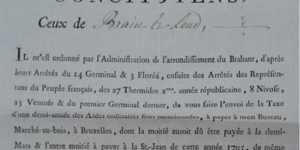 CONCITOYENS,
Ceux de Brain-le-Leud,
IL m'est ordonné par l'Administration de l'arrondissement du Brabant, d'après
leurs Arrêtés du 14 Germinal & 3 Floréal, ensuite des Arrêtés des Représen-
tans du Peuple français, des 27 Thermidor 2me. année républicaine, 8 Nivose,
23 Ventose & du premier Germinal dernier, de vous faire l'envoi de la Taxe
d'une demi-année des Aides ordinaires à payer à mon Bureau,
Marché-au-bois, à Bruxelles, dont la moitié auroit dû être payée à la demi-
Mars & l'autre moitié à payer à la St.-Jean de cette année 1795, de même